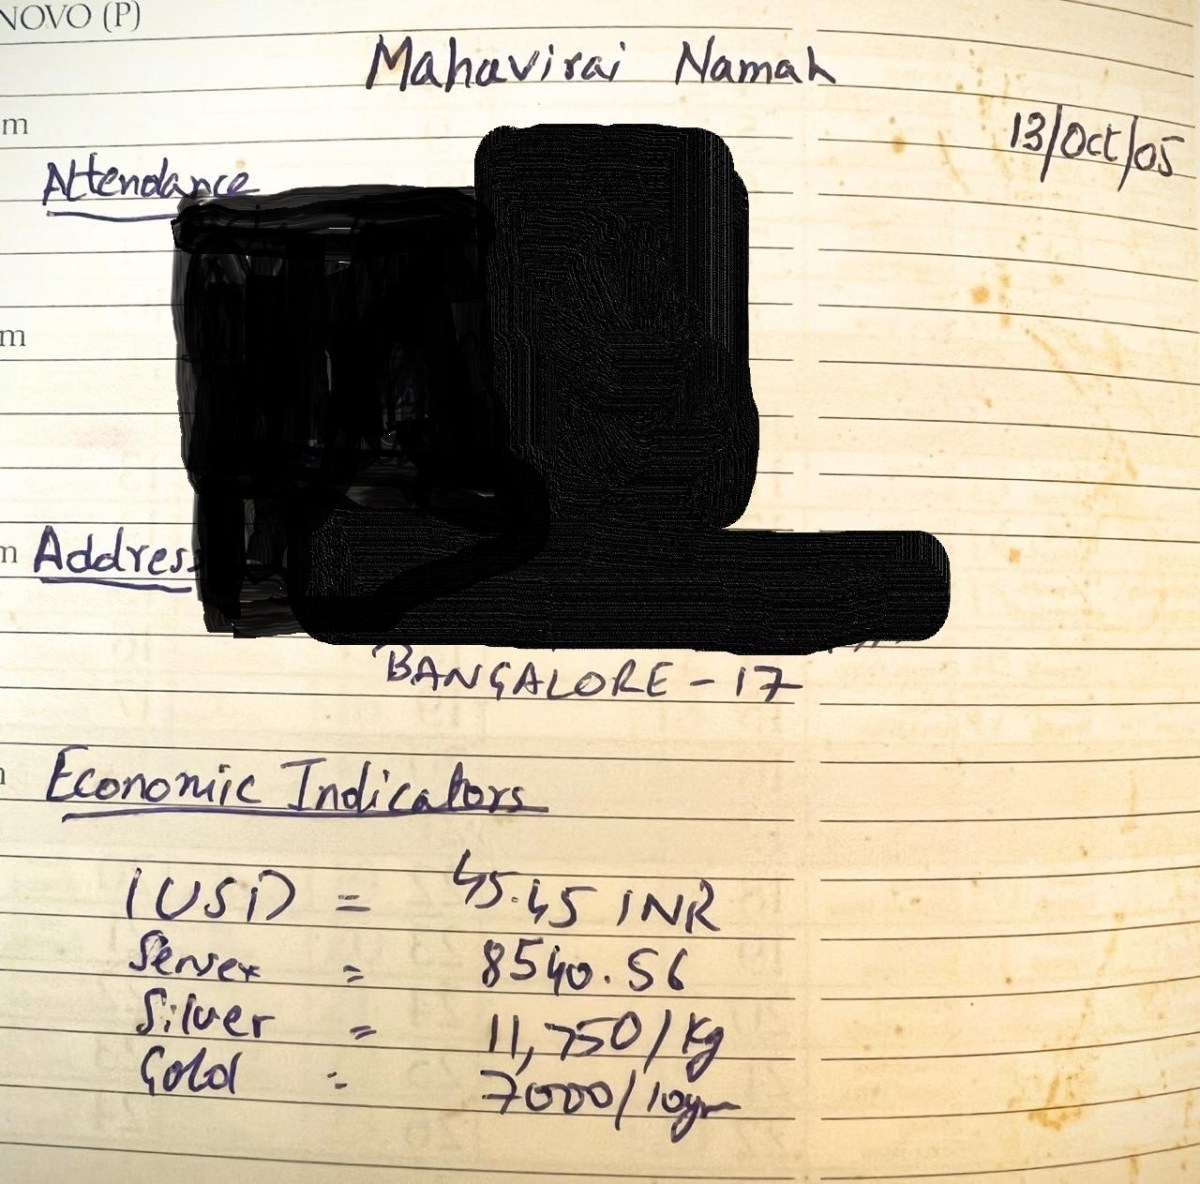 NOVO (P)
Mahavirai Namah
m
13/Oct/05
Attendance
m
m Address
BANGALORE - 17
Economic Indicators
1 USD = 45.45 INR
Sensex = 8540.56
Silver = 11,750/Kg
Gold = 7000/10gm